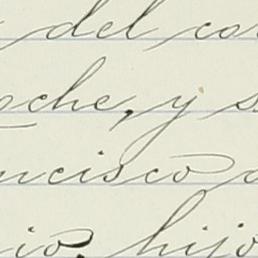 del cor
oche, y s
ncisco a
io, hijo